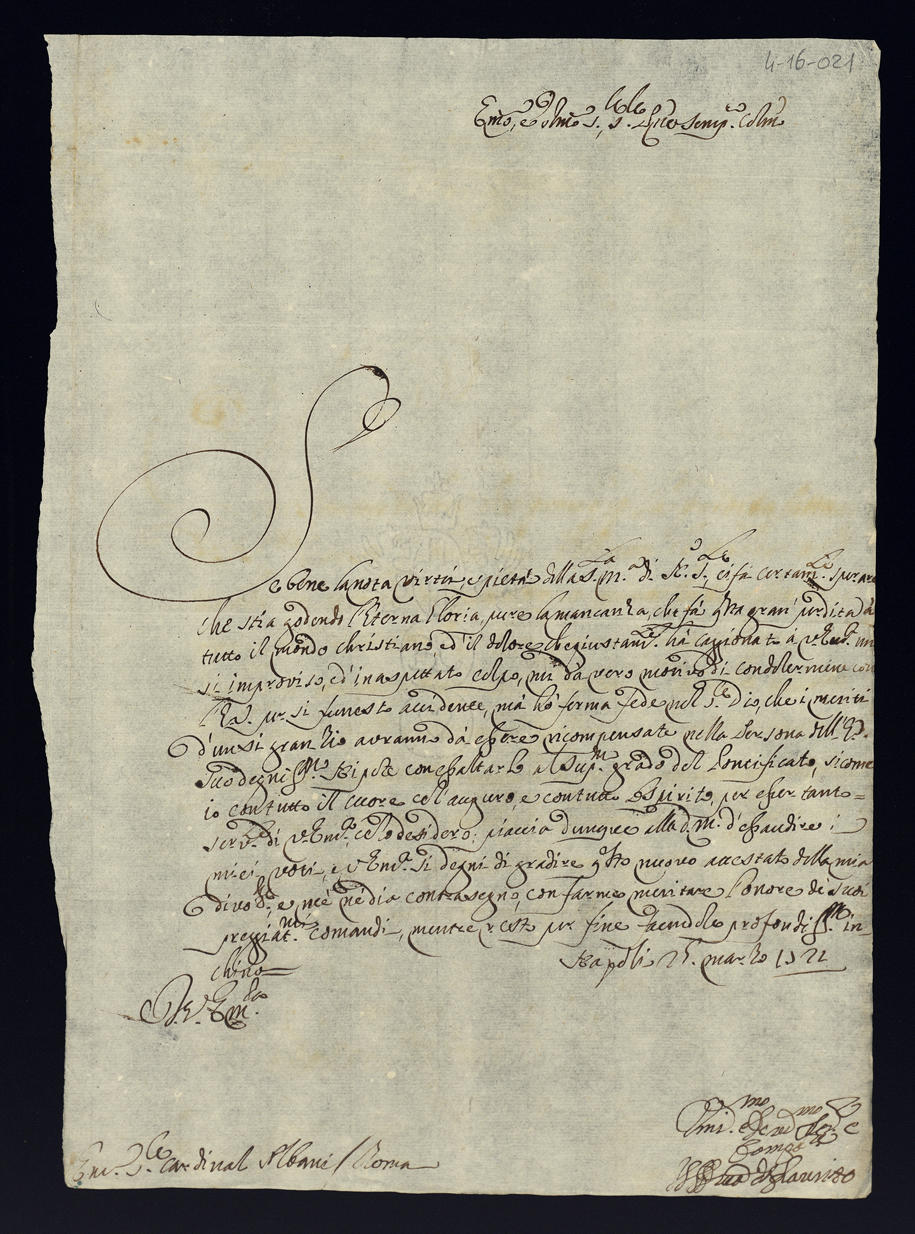 4-16-021
Em̃o, e s. s. Colmo
Se bene la nota virtù, e pietà della S.ta m.a di N.ro S.re ci fà certam.te sperare
che stia godendo l'Eterna Gloria, pure la mancanza, che fà q̃sta gran' perdita à
tutto il mondo christiano, ed' il dolore che giustam.te hà caggionato à V. Em.a un
sì improviso, ed' inaspettato colpo, mi dà vero motivo di condolermene con
l'E.V. p̃ sì funesto accidente, mà hò ferma fede nel S.re Dio, che i meriti
d'un sì gran Zio avranno dà essere ricompensate nella Persona dell' E.V.
Suo degniss.mo Nipote con essaltarlo al Sup.mo grado del Ponteficato, sicome
io con tutto il cuore cel'auguro, e con tutto lo Spirito, per esser tanto=
serv.re di V. Em.a celo desidero; piaccia dunque alla D.M. d'essaudire i
miei voti, e V. Em.a si degni di gradire q̃sto nuovo attestato della mia
divoz.ne, e me ne dia contrasegno, con farme meritare l'onore de' suoi
preggiat.mi comandi, mentre resto per fine facendole profondiss.o in-
chino
Napoli 25 marzo 1721
D. V. Em.za
Em. S.re Cardinal Albani / Roma
Umil.mo